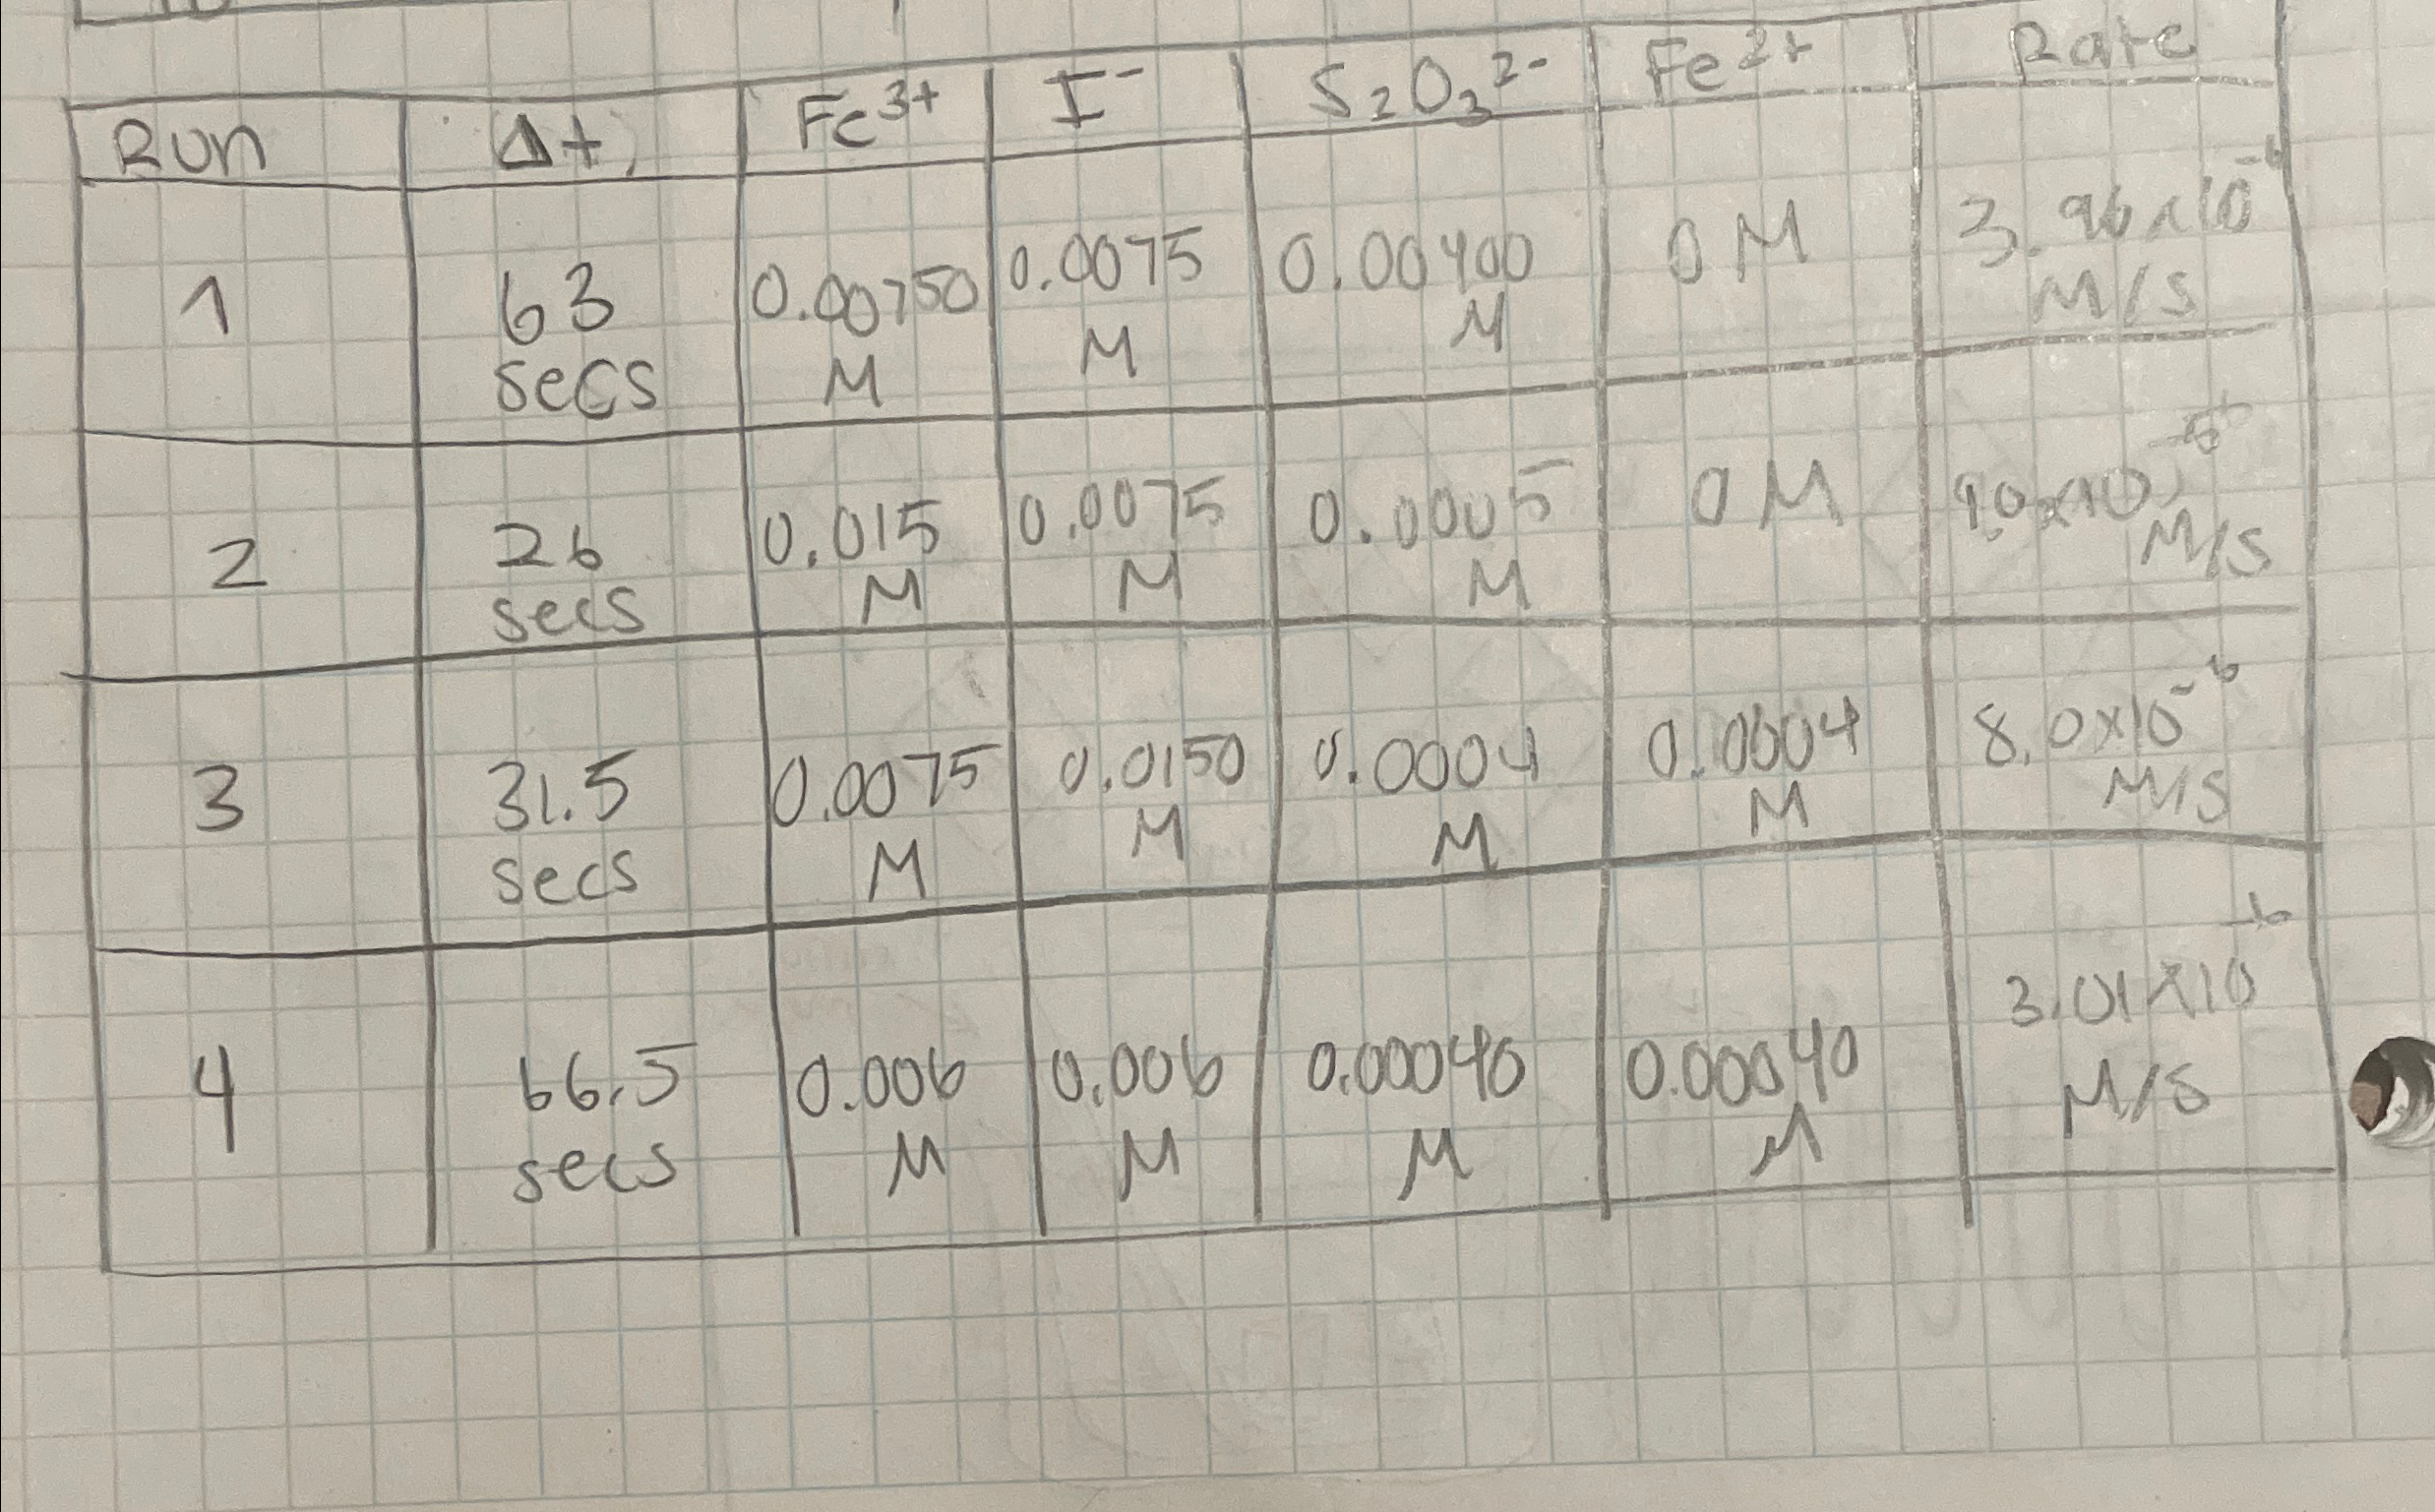 Run Δt Fe³⁺ I⁻ S₂O₃²⁻ Fe²⁺ Rate
1 63 secs 0.00750 M 0.0075 M 0.00400 M 0 M 3.96x10⁻⁶ M/S
2 26 secs 0.015 M 0.0075 M 0.0005 M 0 M M/S
3 31.5 secs 0.0075 M 0.0150 M 0.0004 M 0.0004 M 8.0x10⁻⁶ M/S
4 66.5 secs 0.006 M 0.006 M 0.00040 M 0.00040 M 3.01x10⁻⁶ M/S